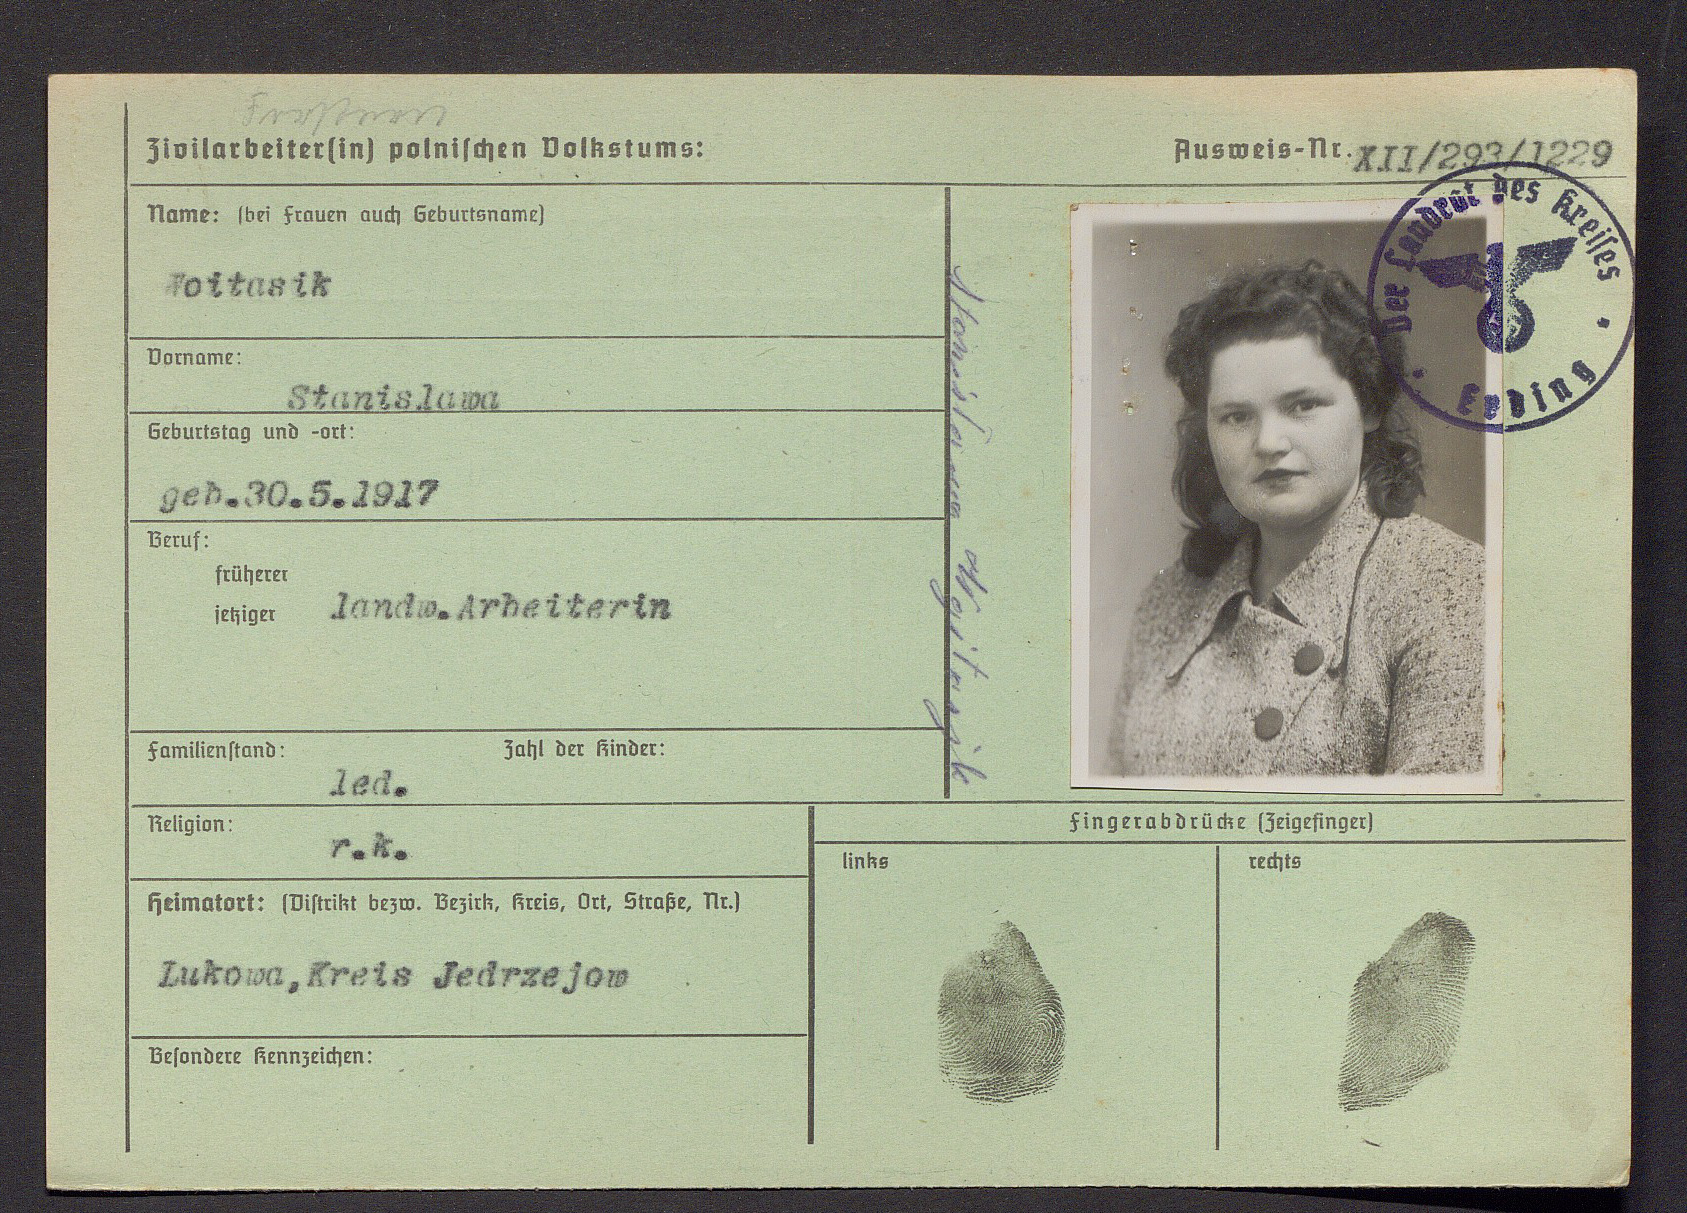 Zivilarbeiter(in) polnischen Volkstums:
Ausweis-Nr. XII/293/1229
Name: (bei Frauen auch Geburtsname)
Woitasik
Vorname:
Stanislawa
Geburtstag und -ort:
geb.30.5.1917
Beruf:
früherer
jetziger landw.Arbeiterin
Familienstand: Zahl der Kinder:
led.
Religion:
r.k.
Heimatort: (Distrikt bezw. Bezirk, Kreis, Ort, Straße, Nr.)
Lukowa,Kreis Jedrzejow
Besondere Kennzeichen:
Stanisława Wojtasik
Der Landrat des Kreises
Erding
Fingerabdrücke (Zeigefinger)
links
rechts